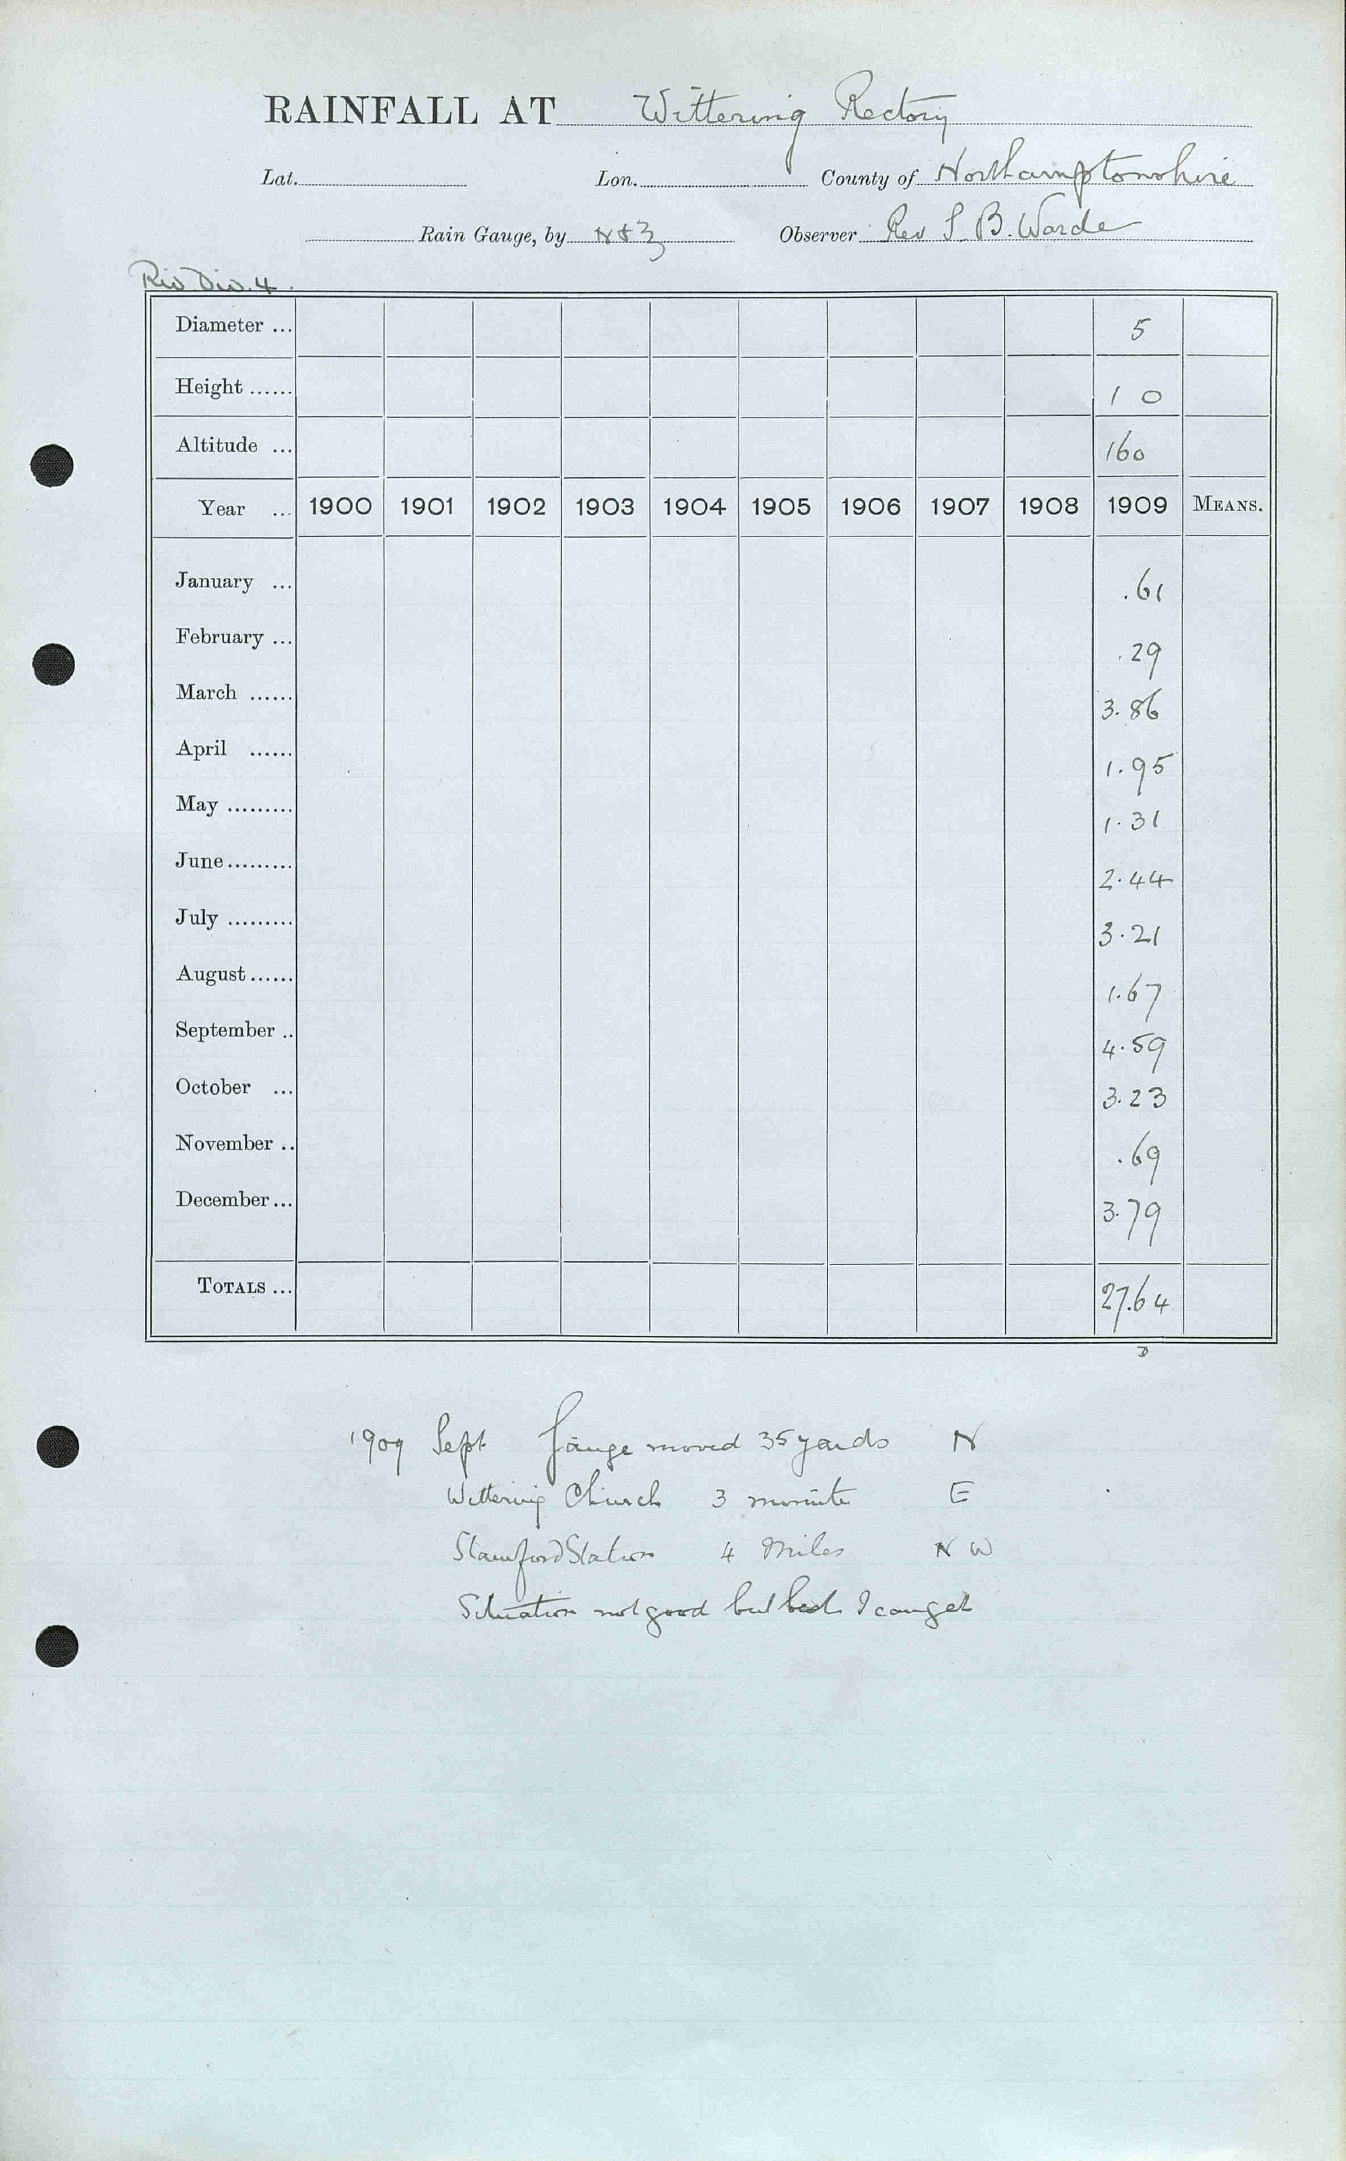 RAINFALL AT Wittering Rectory
Lat. Lon. County of Northamptonshire
Rain Gauge, by N & Z Observer Rev S. B. Warde
Riv Div. 4.
Diameter ... 5
Height ...... 1 0
Altitude ... 160
Year ... 1900 1901 1902 1903 1904 1905 1906 1907 1908 1909 MEANS.
January ... .61
February ... .29
March ...... 3.86
April ...... 1.95
May ......... 1.31
June ......... 2.44
July ......... 3.21
August ...... 1.67
September .. 4.59
October ... 3.23
November .. .69
December ... 3.79
TOTALS ... 27.64
1909 Sept Gauge moved 35 yards N
Wittering Church 3 minute E
Stamford Station 4 Miles N W
Situation not good but best I can get